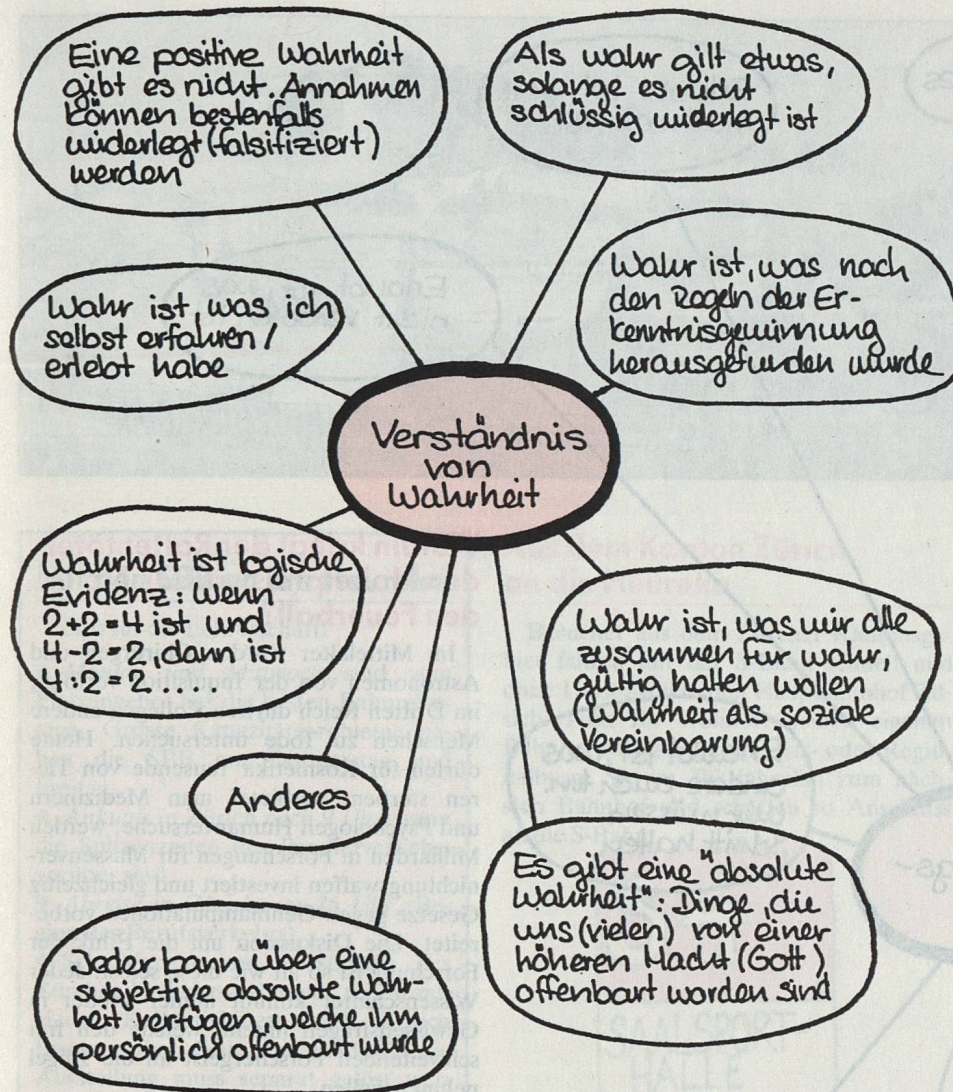 Eine positive Wahrheit
gibt es nicht. Annahmen
können bestenfalls
widerlegt (falsifiziert)
werden
Als wahr gilt etwas,
solange es nicht
schlüssig widerlegt ist
Wahr ist, was ich
selbst erfahren /
erlebt habe
Wahr ist, was nach
den Regeln der Er-
kenntnisgewinnung
herausgefunden wurde
Verständnis
von
Wahrheit
Wahrheit ist logische
Evidenz: Wenn
2+2=4 ist und
4-2=2, dann ist
4:2=2.....
Wahr ist, was wir alle
zusammen für wahr,
gültig halten wollen
(Wahrheit als soziale
Vereinbarung)
Anderes
Es gibt eine "absolute
Wahrheit": Dinge, die
uns (vielen) von einer
höheren Macht (Gott)
offenbart worden sind
Jeder kann über eine
subjektive absolute Wahr-
heit verfügen, welche ihm
persönlich offenbart wurde